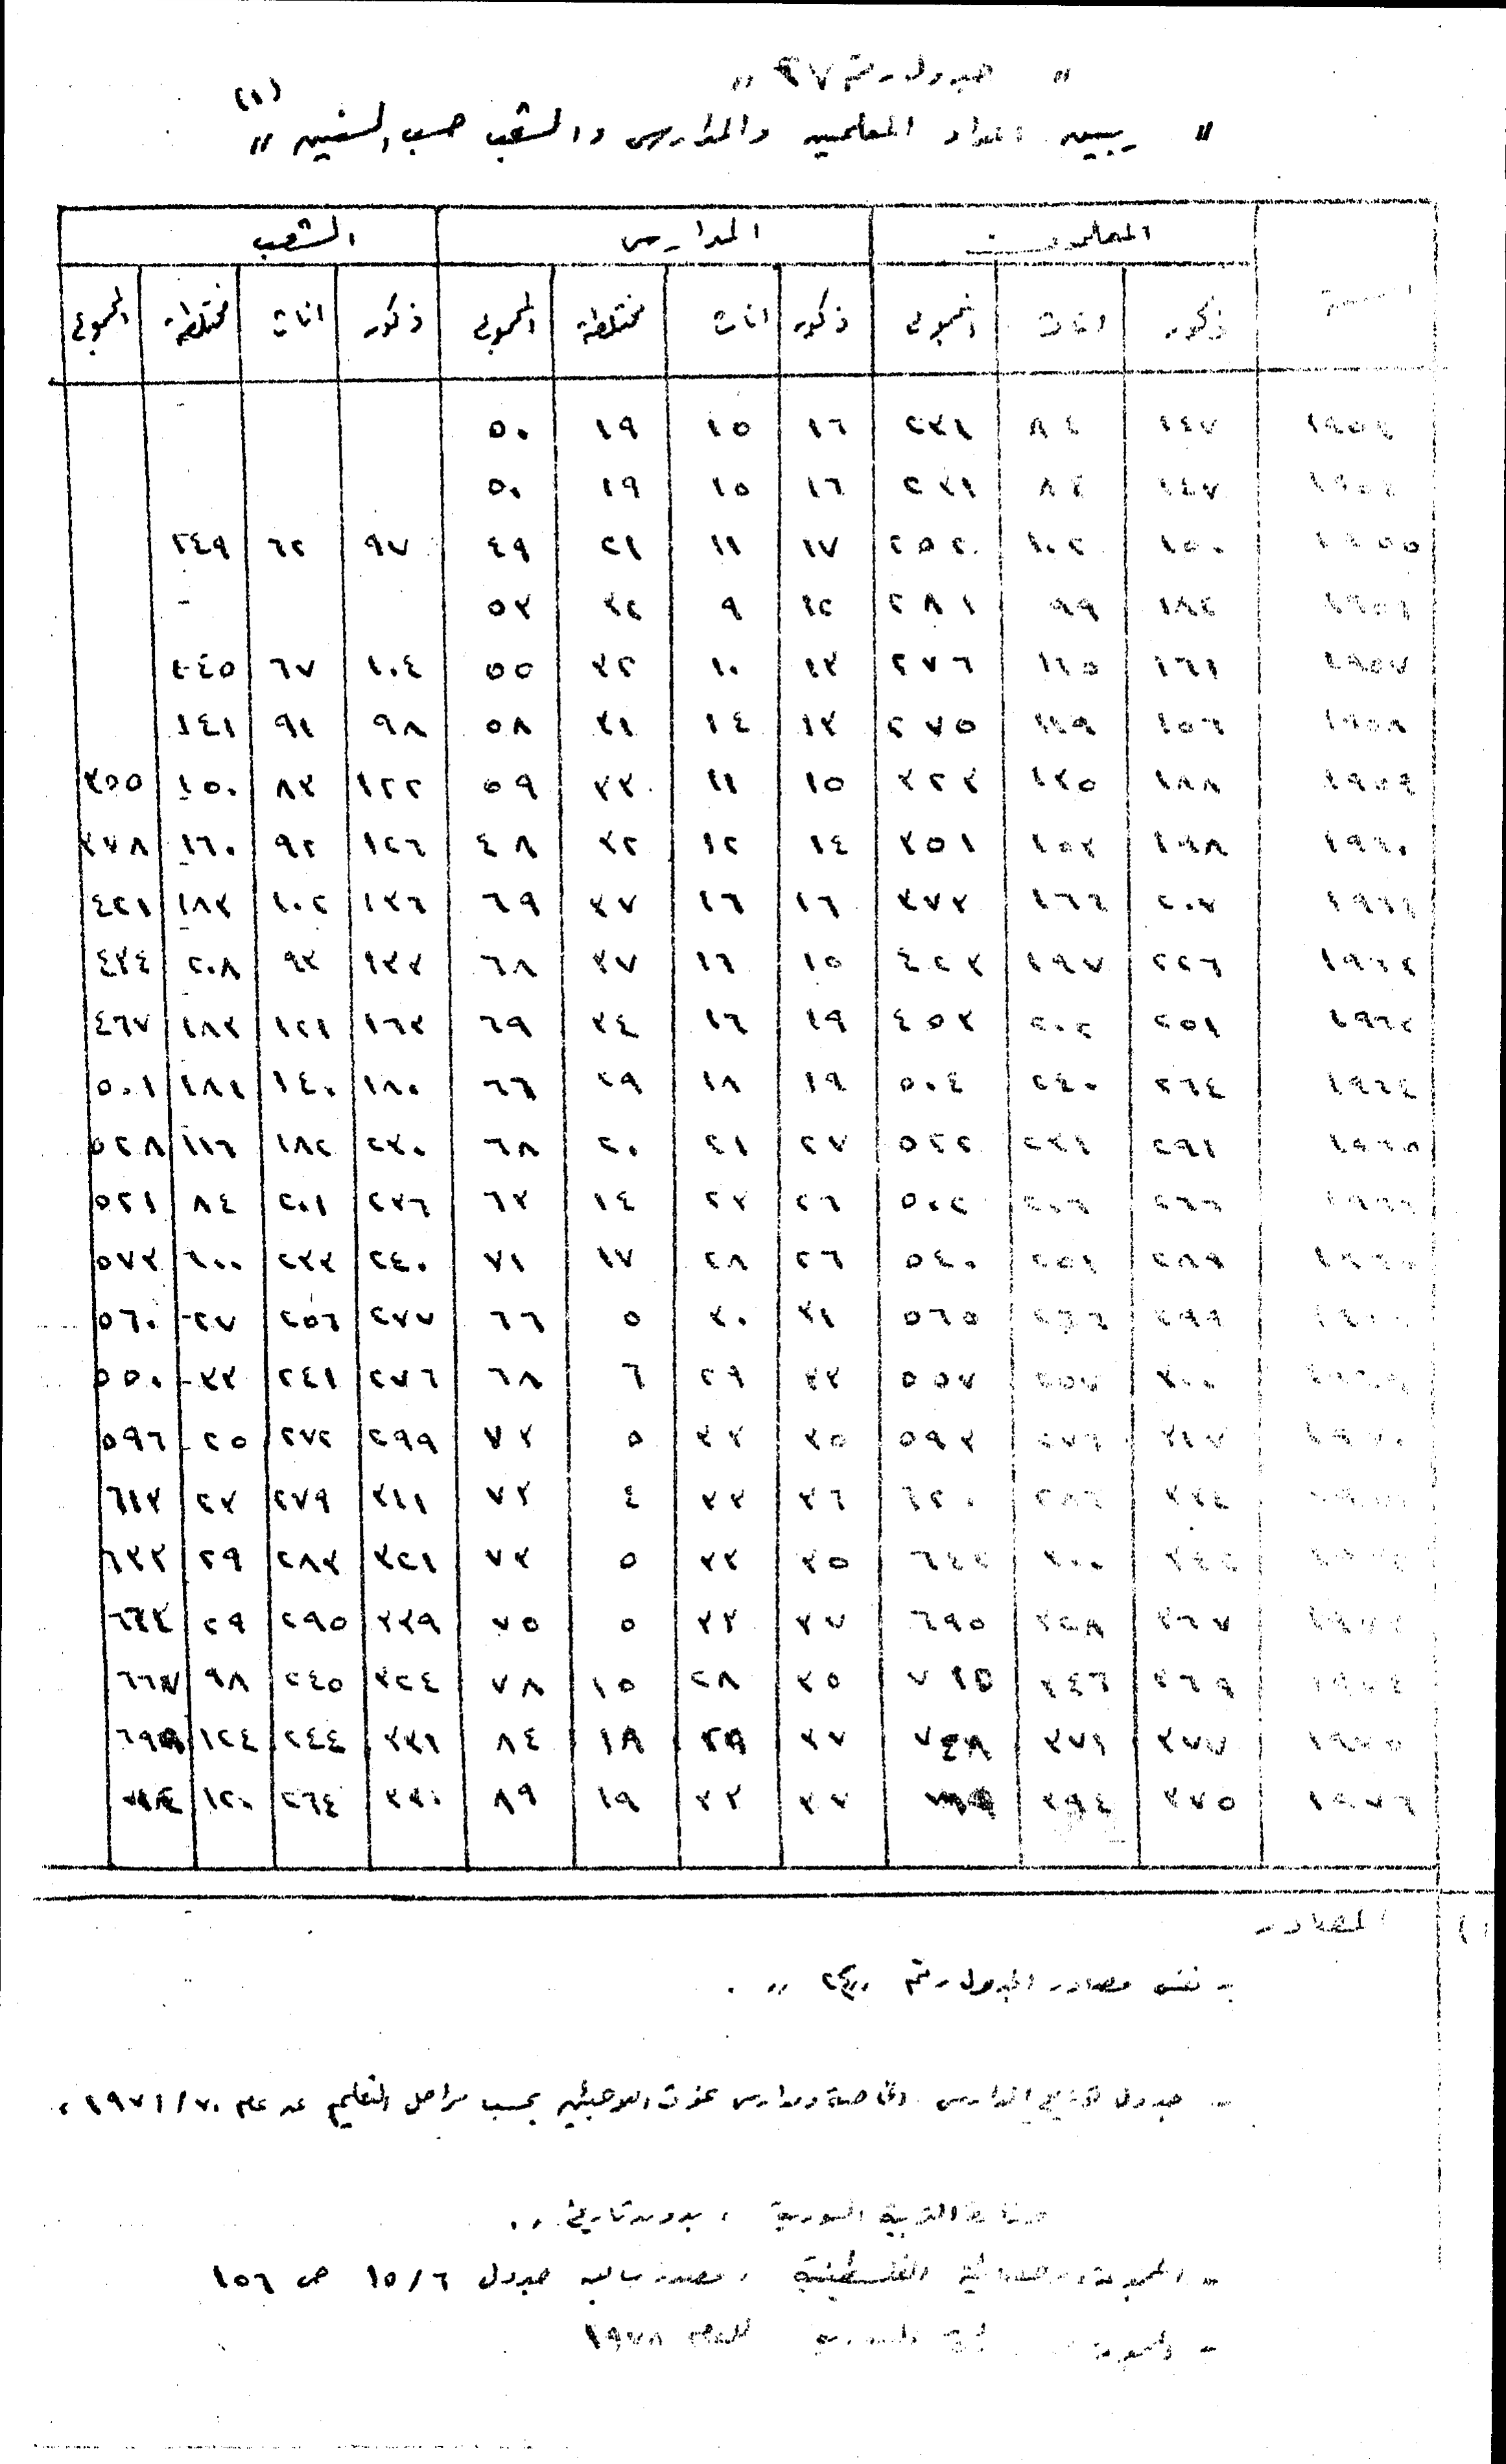 " جدول رقم ٣٧ "
" يبين اعداد المعلمين والمدارس والشعب حسب السنين " (١)
السنة المعلمون المدارس الشعب
ذكور اناث المجموع ذكور اناث مختلطة المجموع ذكور اناث مختلطة المجموع
١٩٥٣ ١٤٧ ٨٤ ٢٣١ ١٦ ١٥ ١٩ ٥٠
١٩٥٤ ١٤٧ ٨٤ ٢٣١ ١٦ ١٥ ١٩ ٥٠
١٩٥٥ ١٥٠ ١٠٢ ٢٥٢ ١٧ ١١ ٢١ ٤٩ ٩٧ ٦٢ ٢٤٩
١٩٥٦ ١٨٢ ٩٩ ٢٨١ ١٢ ٩ ٣٢ ٥٣ -
١٩٥٧ ١٦١ ١١٥ ٢٧٦ ١٣ ١٠ ٣٢ ٥٥ ١٠٤ ٦٧
١٩٥٨ ١٥٦ ١١٩ ٢٧٥ ١٣ ١٤ ٣١ ٥٨ ٩٨ ٩١ ١٤١
١٩٥٩ ١٨٨ ١٣٥ ٣٢٣ ١٥ ١١ ٣٣ ٥٩ ١٢٢ ٨٣ ١٥٠ ٣٥٥
١٩٦٠ ١٩٨ ١٥٣ ٣٥١ ١٤ ١٢ ٢٢ ٤٨ ١٢٦ ٩٢ ١٦٠ ٣٧٨
١٩٦١ ٢٠٧ ١٦٦ ٣٧٣ ١٦ ١٦ ٣٧ ٦٩ ١٣٦ ١٠٢ ١٨٣ ٤٢١
١٩٦٢ ٢٢٦ ١٩٧ ٤٢٣ ١٥ ١٦ ٣٧ ٦٨ ١٣٣ ٩٣ ٢٠٨ ٤٣٤
١٩٦٣ ٢٥١ ٢٠٢ ٤٥٣ ١٩ ١٦ ٣٤ ٦٩ ١٦٣ ١٢١ ١٨٣ ٤٦٧
١٩٦٤ ٢٦٤ ٢٤٠ ٥٠٤ ١٩ ١٨ ٢٩ ٦٦ ١٨٠ ١٤٠ ١٨١ ٥٠١
١٩٦٥ ٢٩١ ٢٣١ ٥٢٢ ٢٧ ٢١ ٢٠ ٦٨ ٢٣٠ ١٨٢ ١١٦ ٥٢٨
١٩٦٦ ٢٩٦ ٢٠٦ ٥٠٢ ٢٦ ٢٣ ١٤ ٦٣ ٢٣٦ ٢٠١ ٨٤ ٥٢١
١٩٦٧ ٢٨٩ ٢٥١ ٥٤٠ ٢٦ ٢٨ ١٧ ٧١ ٢٤٠ ٢٣٣ ١٠٠ ٥٧٣
١٩٦٨ ٢٩٩ ٢٦٦ ٥٦٥ ٣١ ٣٠ ٥ ٦٦ ٢٧٧ ٢٥٦ ٢٧ ٥٦٠
١٩٦٩ ٣٠٠ ٢٥٧ ٥٥٧ ٣٣ ٢٩ ٦ ٦٨ ٢٧٦ ٢٤١ ٣٣ ٥٥٠
١٩٧٠ ٣١٧ ٢٧٦ ٥٩٣ ٣٥ ٣٣ ٥ ٧٣ ٢٩٩ ٢٧٢ ٢٥ ٥٩٦
١٩٧١ ٣٣٤ ٢٨٦ ٦٢٠ ٣٦ ٣٣ ٤ ٧٣ ٣١١ ٢٧٩ ٢٣ ٦١٣
١٩٧٢ ٣٤٢ ٣٠٠ ٦٤٢ ٣٥ ٣٣ ٥ ٧٣ ٣٢١ ٢٨٣ ٢٩ ٦٣٣
١٩٧٣ ٣٦٧ ٣٢٨ ٦٩٥ ٣٧ ٣٣ ٥ ٧٥ ٣٣٩ ٢٩٥ ٢٩ ٦٦٣
١٩٧٤ ٣٦٩ ٣٤٦ ٧١٥ ٣٥ ٢٨ ١٥ ٧٨ ٣٢٤ ٢٤٥ ٩٨ ٦٦٧
١٩٧٥ ٣٧٧ ٣٧١ ٧٤٨ ٣٧ ٢٩ ١٨ ٨٤ ٣٣١ ٢٤٤ ١٢٤ ٦٩٩
١٩٧٦ ٣٧٥ ٣٩٤ ٣٧ ٣٣ ١٩ ٨٩ ٣٣٠ ٢٦٤ ١٢٠ ٧١٤
١) المصادر
- نفس مصادر الجدول رقم
- جدول المدارس الخاصة ومدارس غوث اللاجئين بحسب مراحل التعليم عن عام ١٩٧١/٧٠ ،
وزارة التربية السورية ، بدون تاريخ .
- المجموعة الفلسطينية ، مصدر سابق جدول ١٥/٦ ص ١٥٦
- المجموعة للعام ١٩٧٨